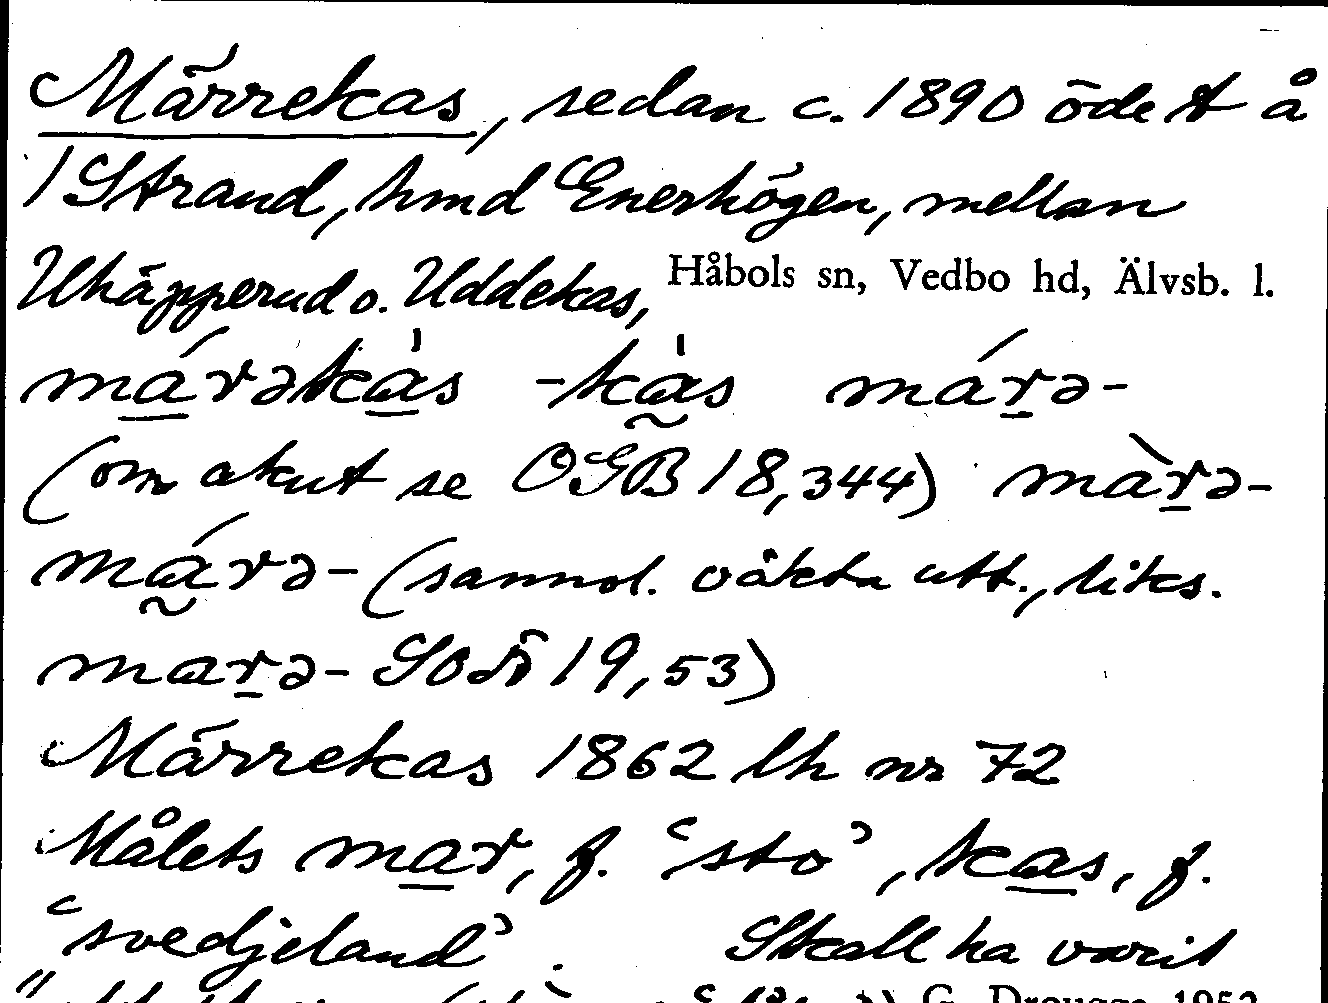 Märrekas, sedan c. 1890 öde t å
1 Strand, hmd Enerhögen, mellan
Ukäpperud o. Uddekas, Håbols sn, Vedbo hd, Älvsb. l.
má̱rəkà̱s -kà̰s márə-
(om akut se OGB 18,344) màrə-
má̰rə- (sannol. väkta utt., liks.
marə- SOÄ 19,53)
Märrekas 1862 lh nr 72
Målets ma̱r, f. ‘sto’, ka̱s, f.
‘svedjeland’. Skall ha varit
G. Drougge 1952